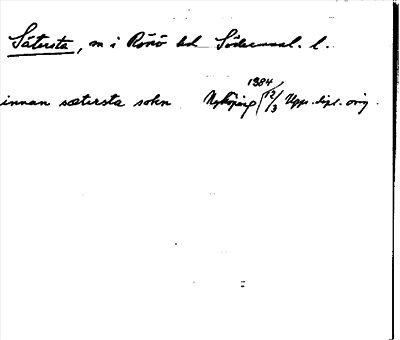 Sätersta, sn i Rönö hd Södermanl. l.
innan sætersta sokn Nyköping 1384 12/3 Upps. dipl. orig.